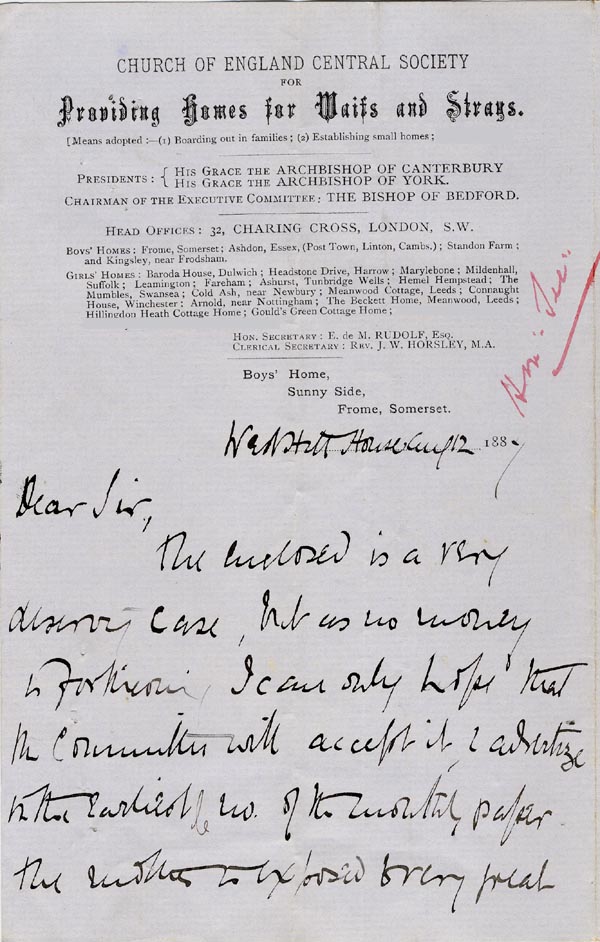 CHURCH OF ENGLAND CENTRAL SOCIETY
FOR
Providing Homes for Waifs and Strays.
[Means adopted :—(1) Boarding out in families ; (2) Establishing small homes ;
PRESIDENTS : { HIS GRACE THE ARCHBISHOP OF CANTERBURY
HIS GRACE THE ARCHBISHOP OF YORK.
CHAIRMAN OF THE EXECUTIVE COMMITTEE : THE BISHOP OF BEDFORD.
HEAD OFFICES : 32, CHARING CROSS, LONDON, S.W.
BOYS' HOMES : Frome, Somerset ; Ashdon, Essex, (Post Town, Linton, Cambs.) ; Standon Farm ;
and Kingsley, near Frodsham.
GIRLS' HOMES : Baroda House, Dulwich ; Headstone Drive, Harrow ; Marylebone ; Mildenhall,
Suffolk ; Leamington ; Fareham ; Ashurst, Tunbridge Wells ; Hemel Hempstead ; The
Mumbles, Swansea ; Cold Ash, near Newbury ; Meanwood Cottage, Leeds ; Connaught
House, Winchester ; Arnold, near Nottingham ; The Beckett Home, Meanwood, Leeds ;
Hillingdon Heath Cottage Home ; Gould's Green Cottage Home ;
HON. SECRETARY : E. de M. RUDOLF, ESQ.
CLERICAL SECRETARY : REV. J. W. HORSLEY, M.A.
Boys' Home,
Sunny Side,
Frome, Somerset.
House Aug 12 1887
Dear Sir,
The enclosed is a very
deserving case, but as no money
is forthcoming I can only hope that
the Committee will accept it, & advertize
in the earliest no. of the monthly paper
The mother is exposed to very great